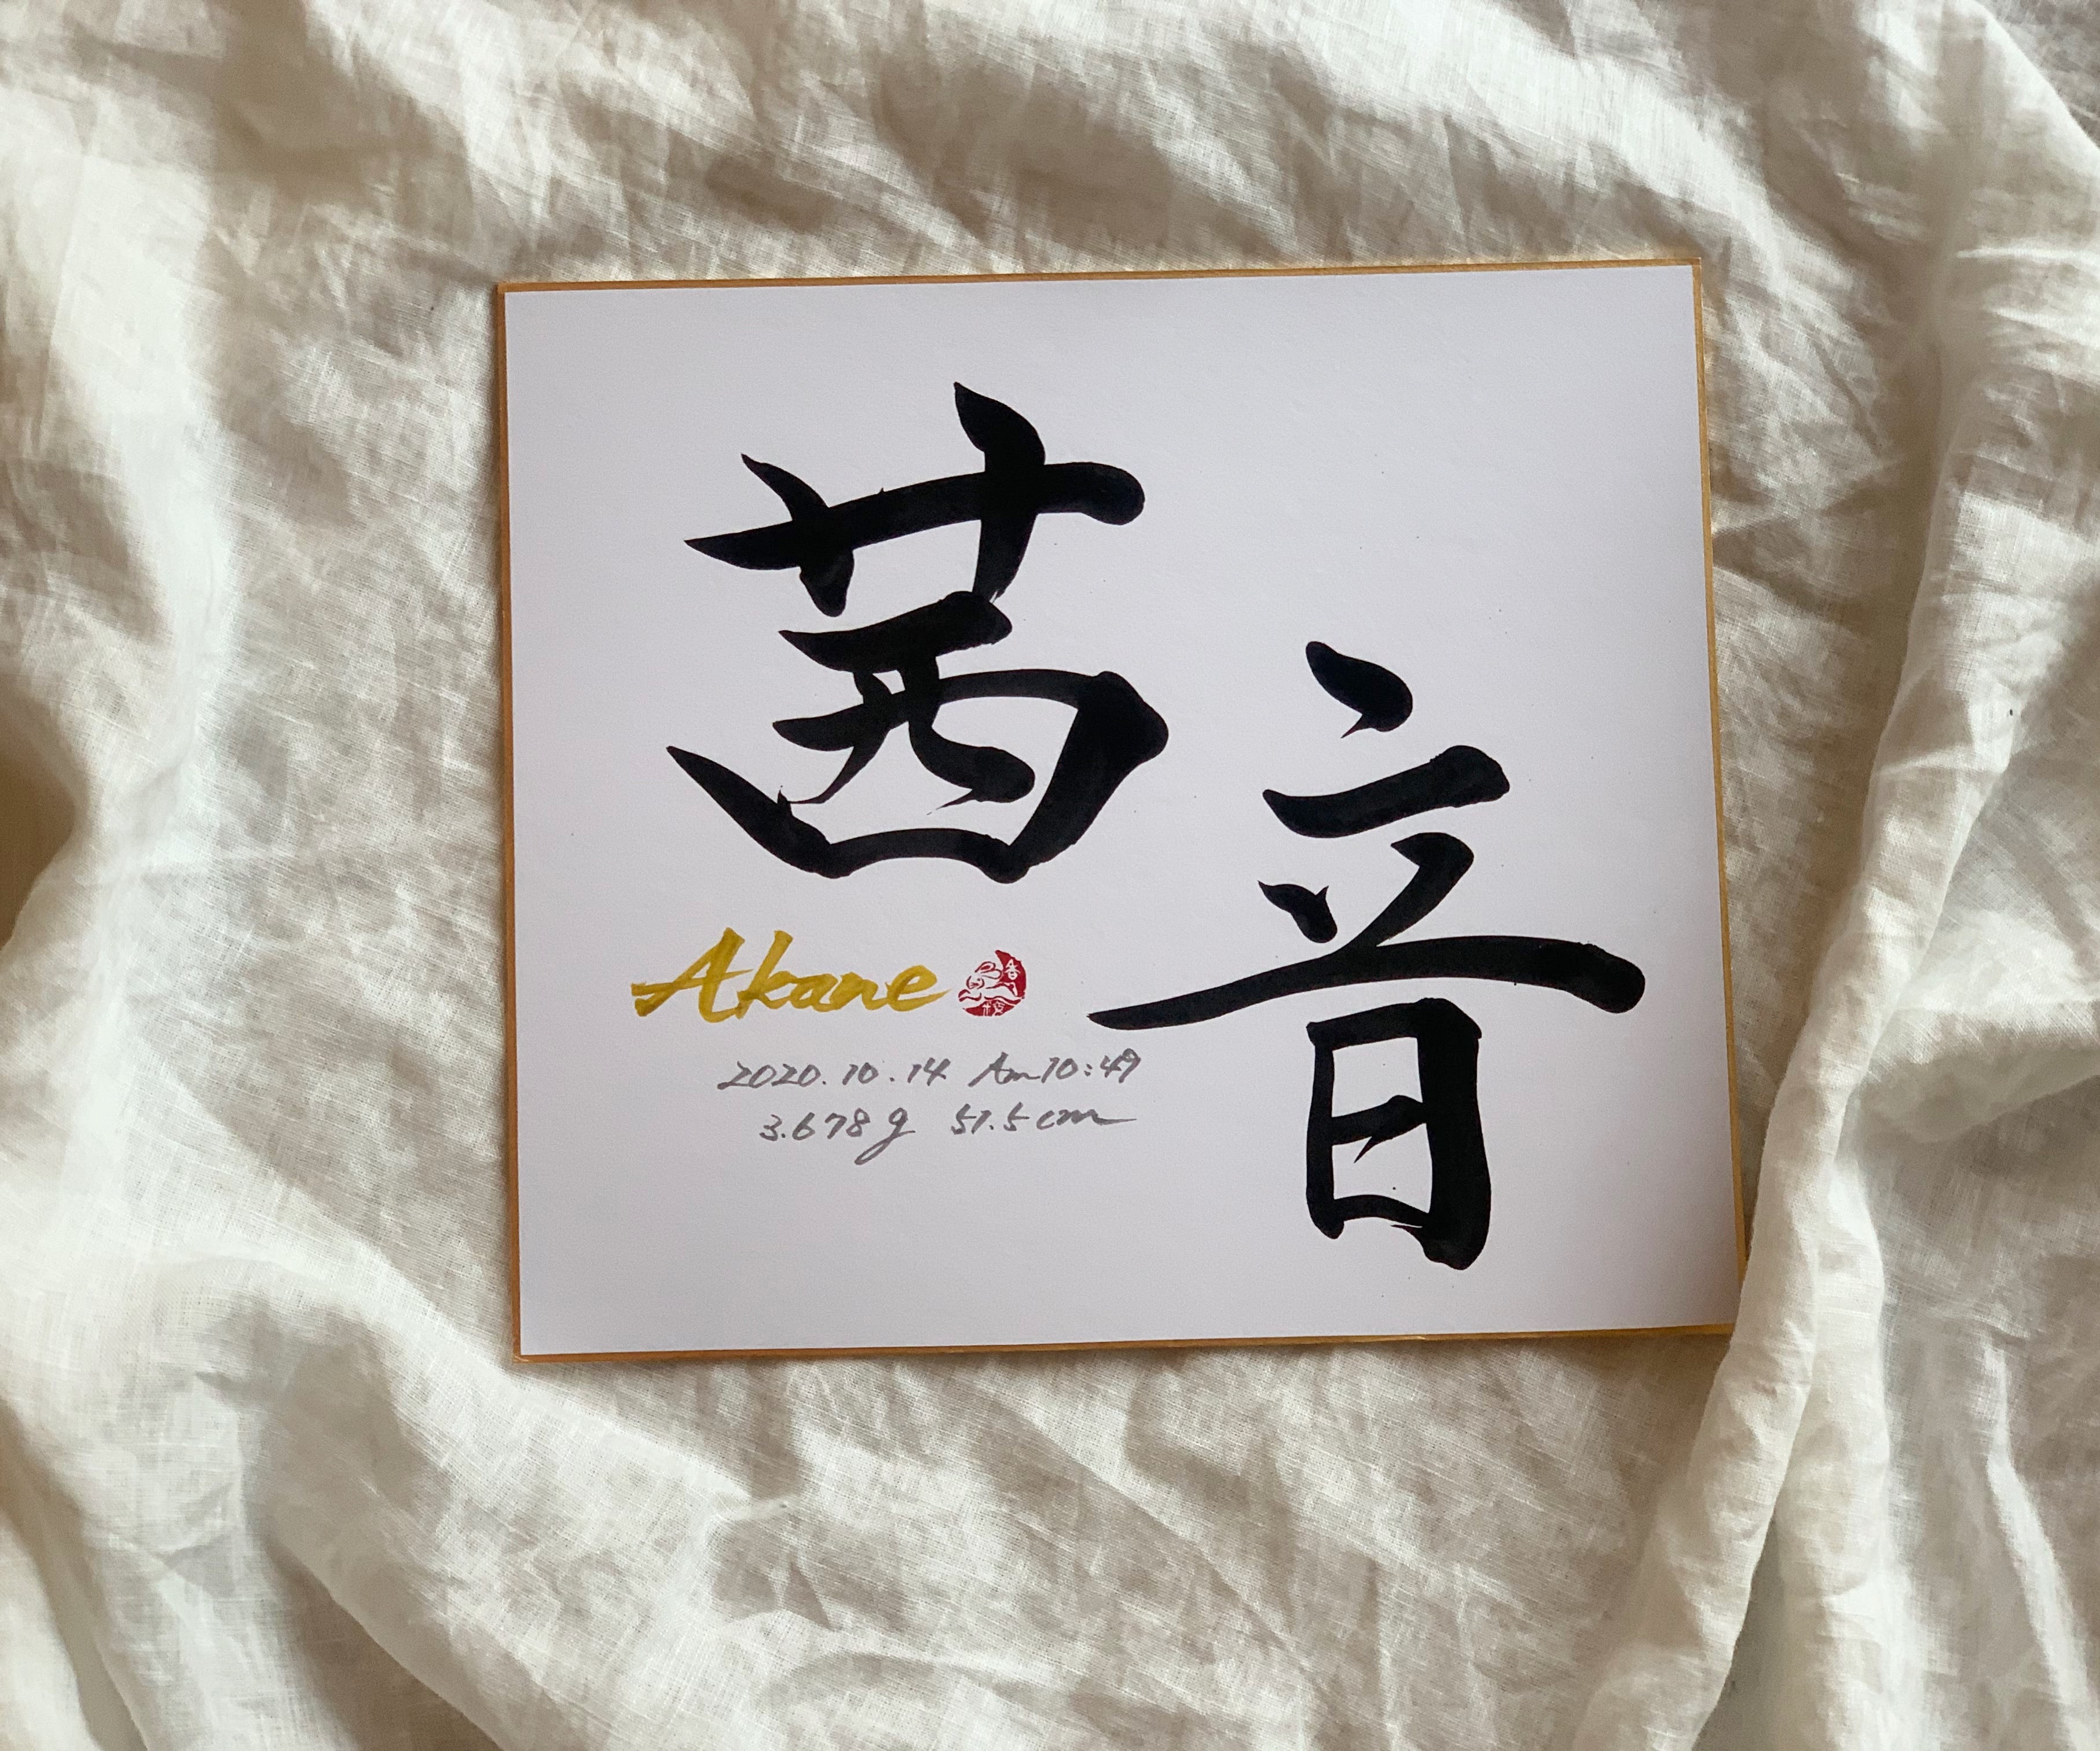 茜音
Akane
2020.10.14 Am10:49
3.678g 51.5cm